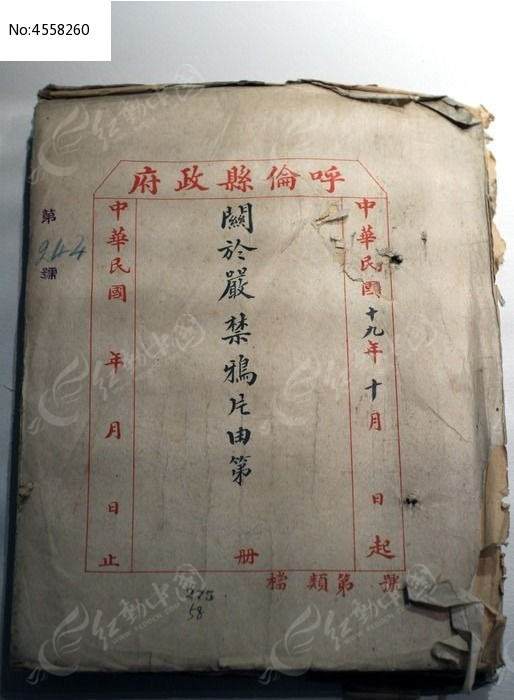 No:4558260
呼倫縣政府
中華民國十九年十月 日起
關於嚴禁鴉片由第 册
中華民國 年 月 日止
號 第 類 檔
第
944
號
275
58